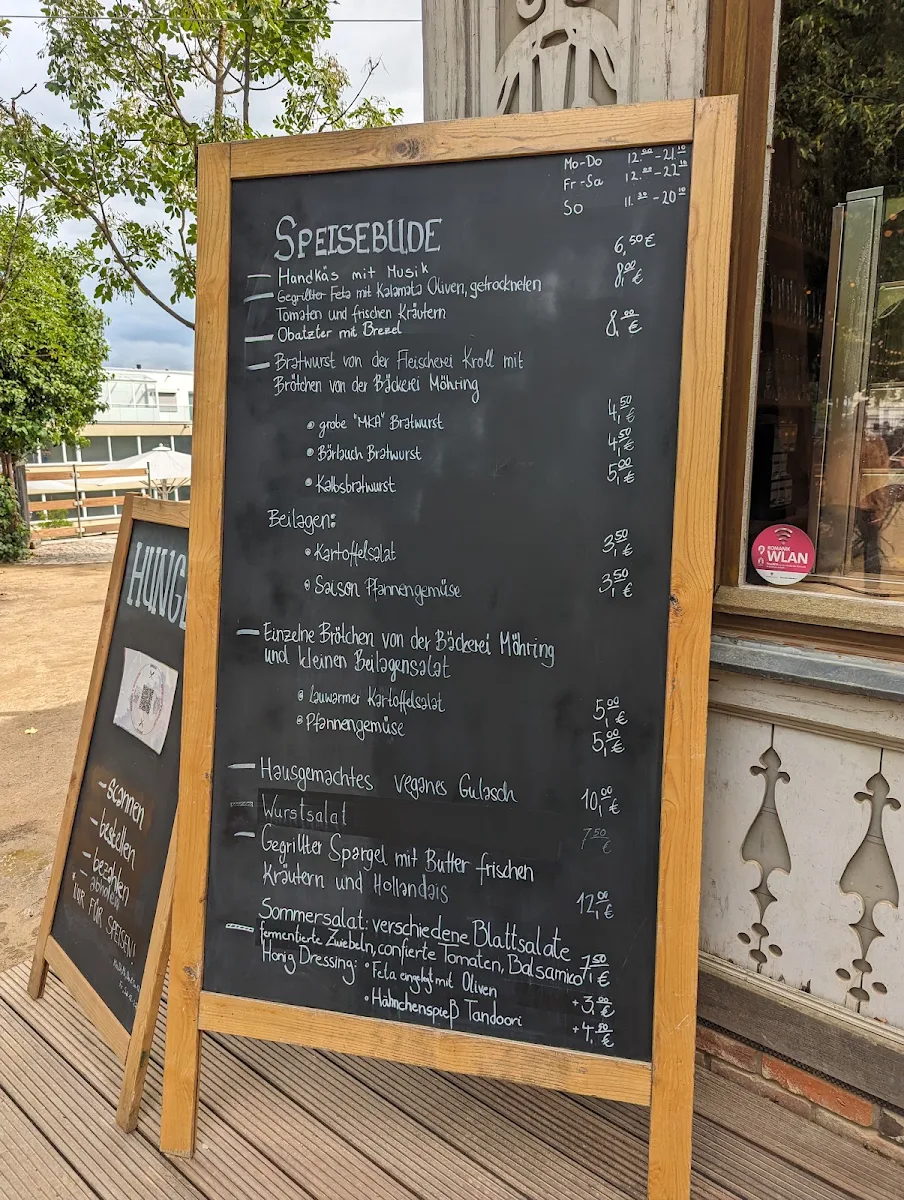 Mo-Do 12.00-21.10
Fr-Sa 12.00-22.10
So 11.30-20.10
SPEISEBUDE
Handkäs mit Musik 6,50€
Gegrillter Feta mit Kalamata Oliven, getrockneten 8,00€
Tomaten und frischen Kräutern
Obatzter mit Brezel 8,00€
Bratwurst von der Fleischerei Kroll mit
Brötchen von der Bäckerei Möhring
grobe "MKA" Bratwurst 4,50€
Bärlauch Bratwurst 4,50€
Kalbsbratwurst 5,00€
Beilagen:
Kartoffelsalat 3,50€
Saison Pfannengemüse 3,50€
Einzelne Brötchen von der Bäckerei Möhring
und kleinen Beilagensalat
lauwarmer Kartoffelsalat 5,00€
Pfannengemüse 5,00€
Hausgemachtes veganes Gulasch 10,00€
Wurstsalat 7,50€
Gegrillter Spargel mit Butter frischen
Kräutern und Hollandais 12,00€
Sommersalat: verschiedene Blattsalate
fermentierte Zwiebeln, confierte Tomaten, Balsamico 7,50€
Honig Dressing: Feta eingelegt mit Oliven +3,00€
Hähnchenspieß Tandoori +4,50€
HUNG
-scannen
-bestellen
-bezahlen
-abholen
NUR FÜR SPEISEN!
ROMANTIK
WLAN